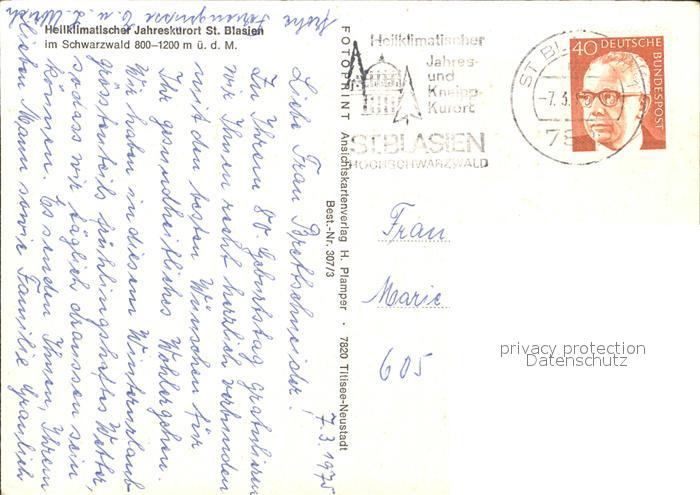 Heilklimatischer Jahreskurort St. Blasien
im Schwarzwald 800–1200 m ü. d. M.
7.3.1975
Liebe Frau Brettschneider!
Zu Ihrem 80. Geburtstag gratulieren
wir Ihnen recht herzlich verbunden
mit den besten Wünschen für
Ihr gesundheitliches Wohlergehen.
Wir haben in diesem Winterurlaub
grösstenteils frühlingshaftes Wetter,
sodass wir täglich draussen sein
können. Es senden Ihnen, Ihrem
lieben Mann sowie Familie
frohe Feriengrüsse E. u. L. Ulrich
FOTOPRINT Ansichtskartenverlag H. Plamper · 7820 Titisee-Neustadt
Best.-Nr. 307/3
Heilklimatischer
Jahres-
und
Kneipp-
Kurort
ST. BLASIEN
HOCHSCHWARZWALD
ST BL
-7.3.
40 DEUTSCHE
BUNDESPOST
Frau
Marie
605
privacy protection
Datenschutz